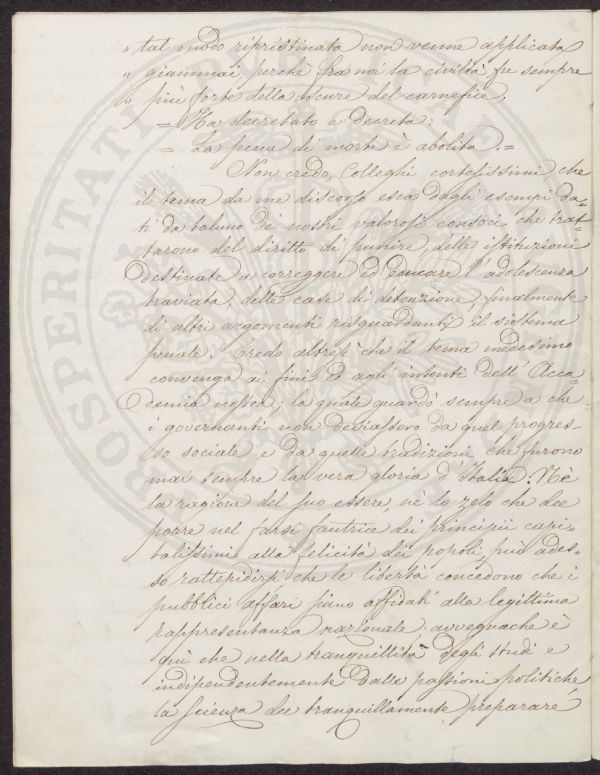 » tal modo ripristinata non venne applicata
» giammai perchè fra noi la civiltà fu sempre
» più forte della scure del carnefice,
= Ha decretato e decreta:
= La pena di morte è abolita.=
Non credo, Colleghi cortesissimi, che
il tema da me discorso esca dagli esempi da-
ti da taluno de' nostri valorosi consoci, che trat-
tarono del diritto di punire, delle istituzioni
destinate a correggere ed educare l'adolescenza
traviata, delle case di detenzione, finalmente
di altri argomenti risguardanti il sistema
penale. Credo altresì che il tema medesimo
convenga ai fini ed agli intenti dell'Acca-
demia nostra; la quale guardò sempre a che
i governanti non deviassero da quel progres-
so sociale e da quelle tradizioni che furono
mai sempre la vera gloria d'Italia. Nè
la ragione del suo essere, nè lo zelo che dee
porre nel farsi fautrice dei principii capi-
talissimi alla felicità dei popoli, può ades-
so rattepidirsi che le libertà concedono che i
pubblici affari siano affidati alla legittima
rappresentanza nazionale, avvegnachè è
qui che nella tranquillità degli studi e
indipendentemente dalle passioni politiche
la scienza dee tranquillamente preparare
PROSPERITATI PUBLICAE